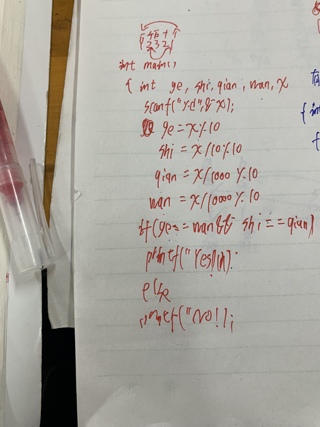 12321
int main()
{ int ge, shi, qian, wan, x
scanf("%d",& x);
ge = x%10
shi = x/10%10
qian = x/1000%10
wan = x/10000%10
if(ge==wan&& shi==qian)
printf("Yes\n);
else
printf("NO!);
{ in